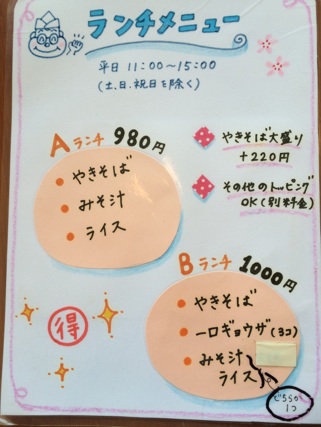 ランチメニュー
平日 11:00〜15:00
(土、日、祝日を除く)
Aランチ 980円
・やきそば
・みそ汁
・ライス
やきそば大盛り
+220円
その他のトッピング
OK(別料金)
Bランチ 1000円
・やきそば
・一口ギョウザ(3コ)
・みそ汁
ライス
どちらか
1つ
得